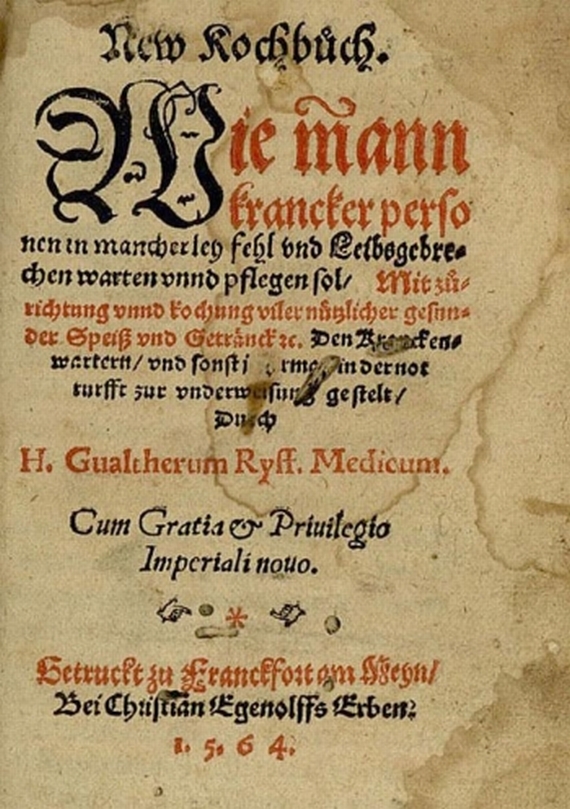 New Kochbůch.
Wie m̃ann
krancker perso
nen in mancherley fehl vnd Leibsgebre⸗
chen warten vnnd pflegen sol/ Mit zů⸗
richtung vnnd kochung viler nützlicher gesun⸗
der Speiß vnd Getränck ꝛc. Den Krancken⸗
wartern/ vnd sonst in der not
turfft zur vnderweisung gestelt/
Durch
H. Gualtherum Ryff. Medicum.
Cum Gratia & Priuilegio
Imperiali nouo.
☞ * ☜
Getruckt zu Franckfort am Meyn/
Bei Christian Egenolffs Erben:
1. 5. 6 4.